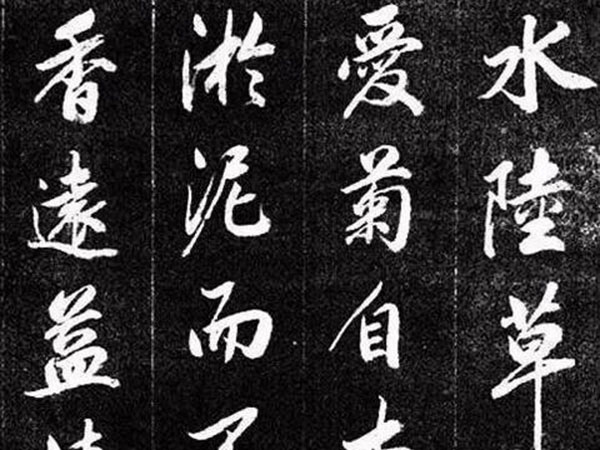 水陸草
愛菊自
淤泥而不
香遠益清